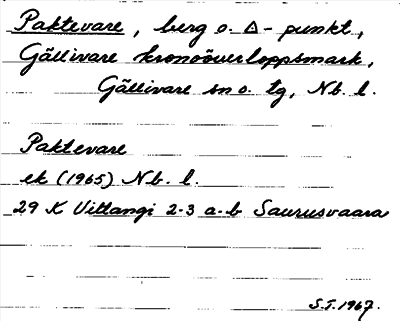 Paktevare, berg o. Δ-punkt,
Gällivare kronoöverloppsmark,
Gällivare sn o. tg, Nb. l.
Paktevare
ek (1965) Nb. l.
29 K Vittangi 2-3 a-b Saurusvaara
S.T. 1967.